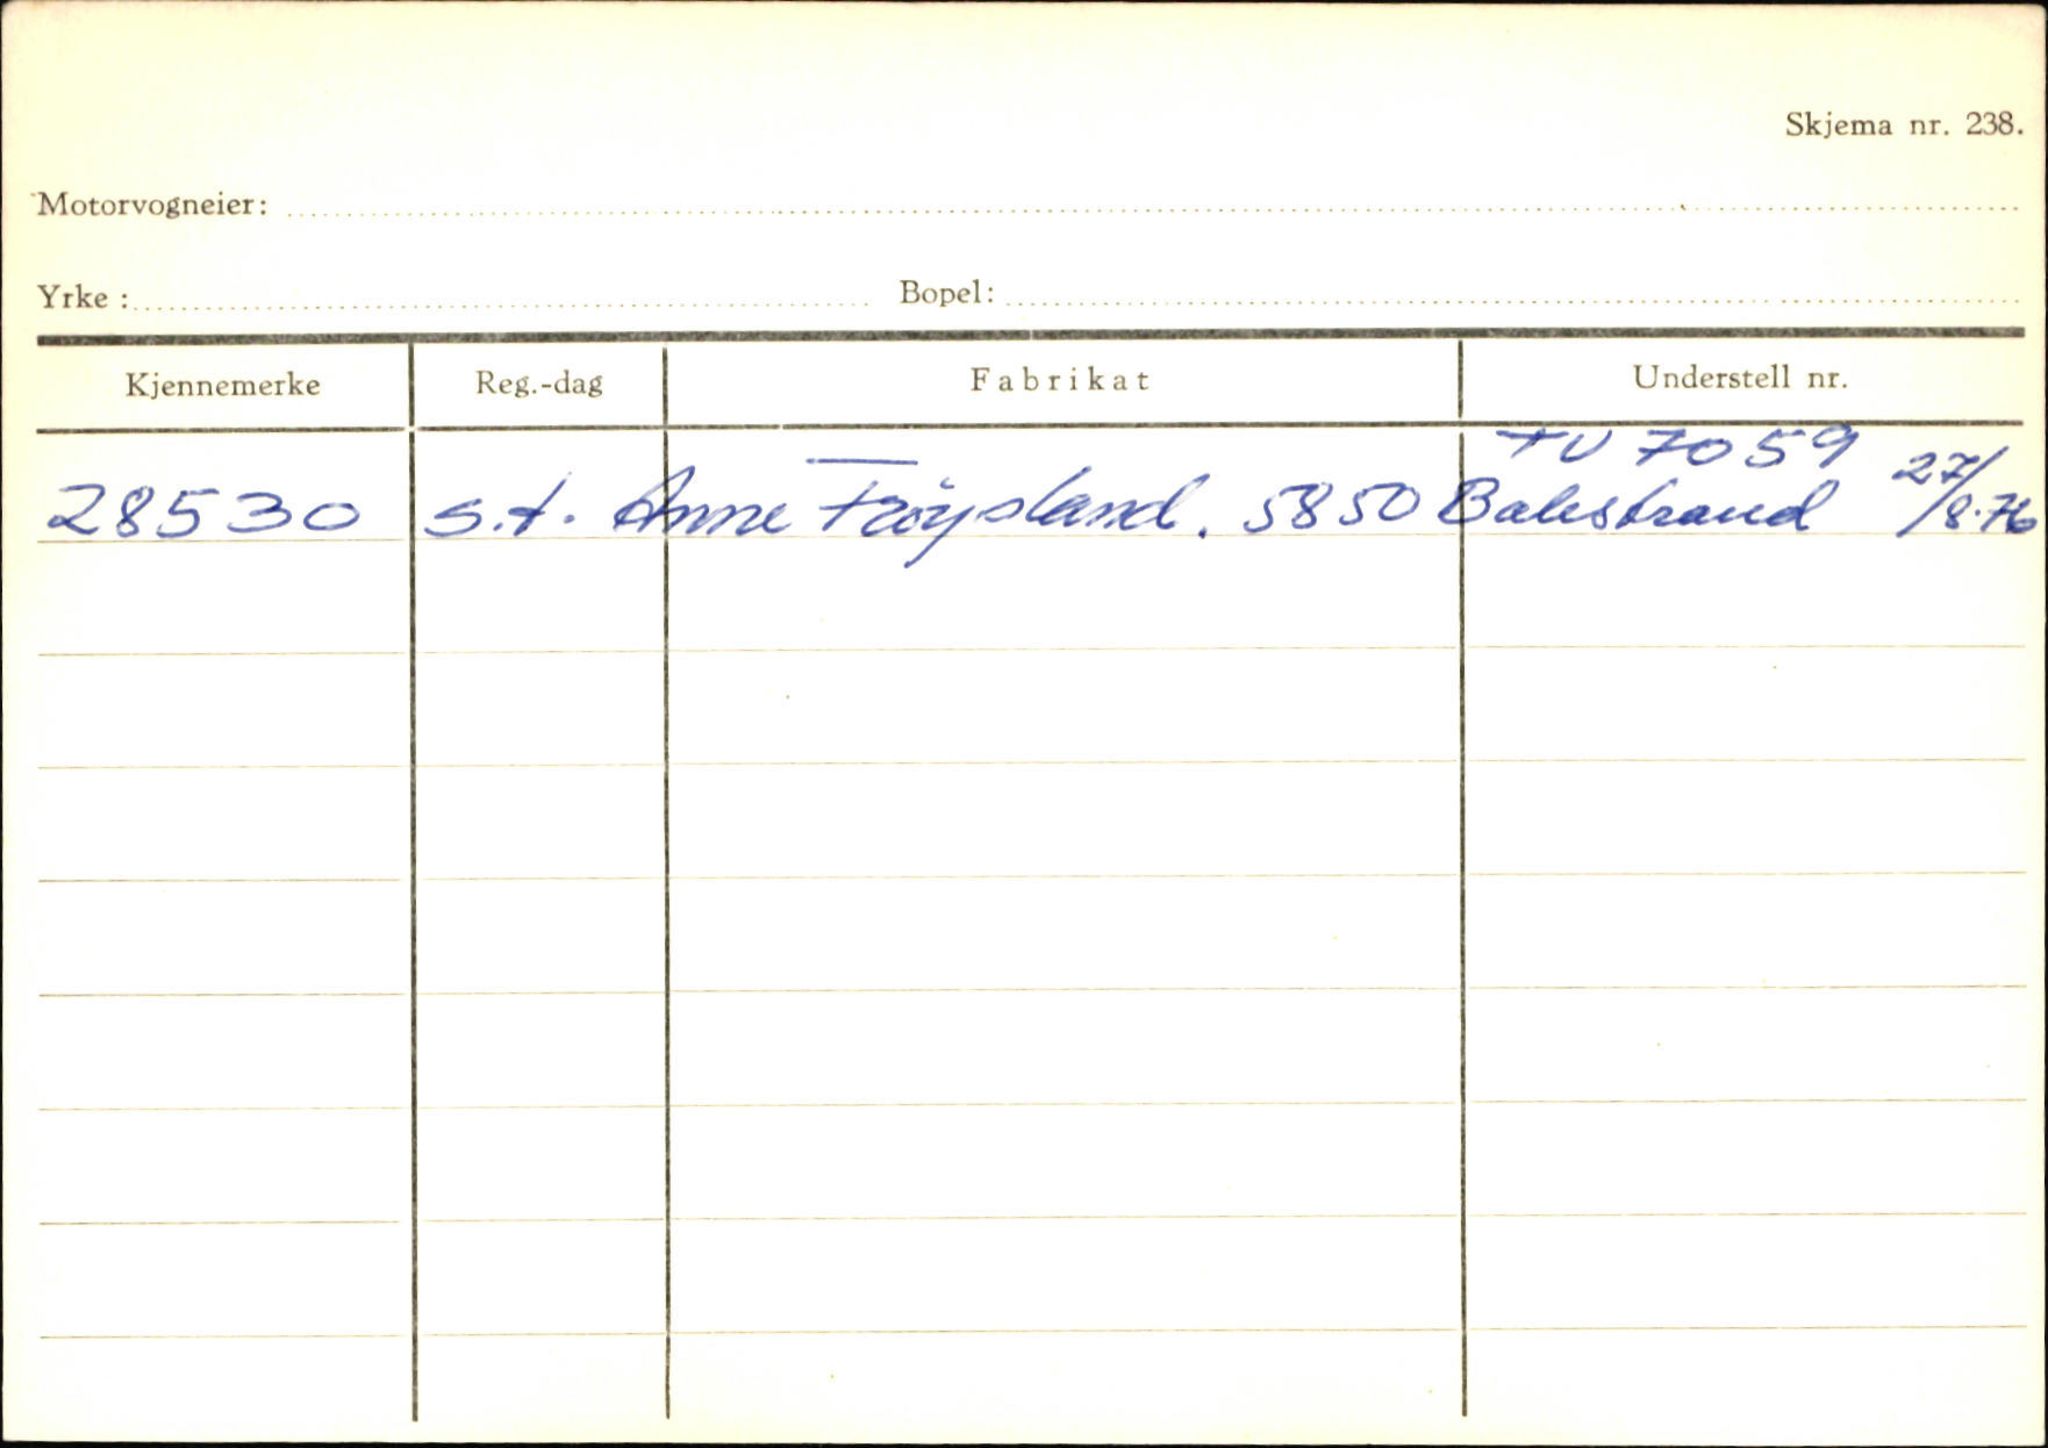 Skjema nr. 238.
Motorvogneier:
Yrke : Bopel:
Kjennemerke Reg.-dag Fabrikat Understell nr.
TU 7059
28530 s.t. Anne Frøysland. 5850 Balestrand 27/8.76